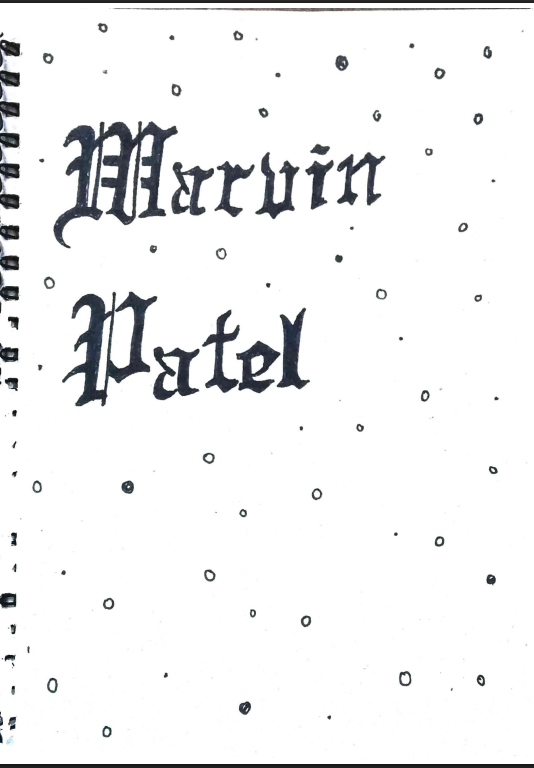 Marvin
Patel